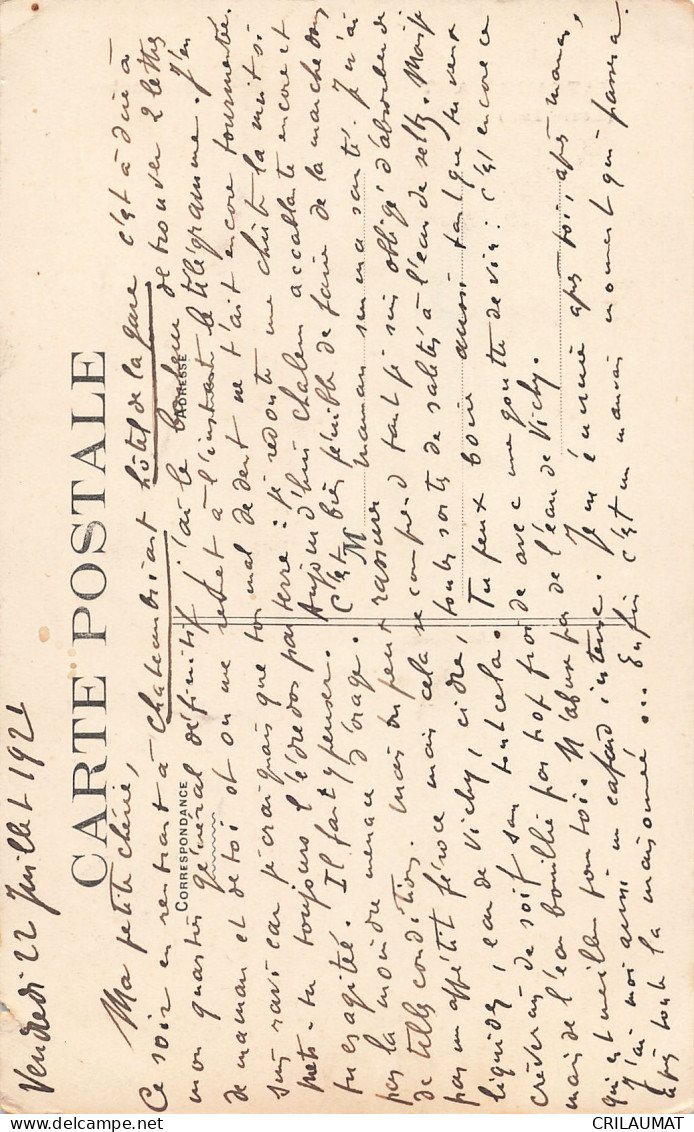 Vendredi 22 Juillet 1921
CARTE POSTALE
CORRESPONDANCE
ADRESSE
M
Ma petite chérie,
Ce soir en rentrant à Chateaubriant hôtel de la gare c'est à dire à
mon quartier général définitif j'ai le bonheur de trouver 2 lettres
de maman et de toi et on me remet à l'instant le télégramme. J'en
suis ravi car je craignais que ton mal de dent ne t'ait encore tourmentée.
Mets-tu toujours l'édredon par terre : je redoute une chute la nuit si
tu es agitée. Il faut y penser. Aujourd'hui chaleur accablante encore et
pas la moindre menace d'orage. C'est bien pénible de faire de la marche dans
de telles conditions. Mais on peut rassurer maman sur ma santé. Je n'ai
pas un appétit féroce mais cela se comprend tant je suis obligé d'absorber de
liquides, eau de Vichy, cidre, toutes sortes de saletés à l'eau de seltz. Mais je
crèverais de soif sans tout cela. Tu peux boire aussi tant que tu veux
mais de l'eau bouillie pas trop froide avec une goutte de vin : c'est encore ce
qui est meilleur pour toi. N'abuse pas de l'eau de Vichy.
J'ai moi aussi un cafard intense. Je m'ennuie après toi, après maman,
après toute la maisonnée... Enfin c'est un mauvais moment qui passera.
CRILAUMAT